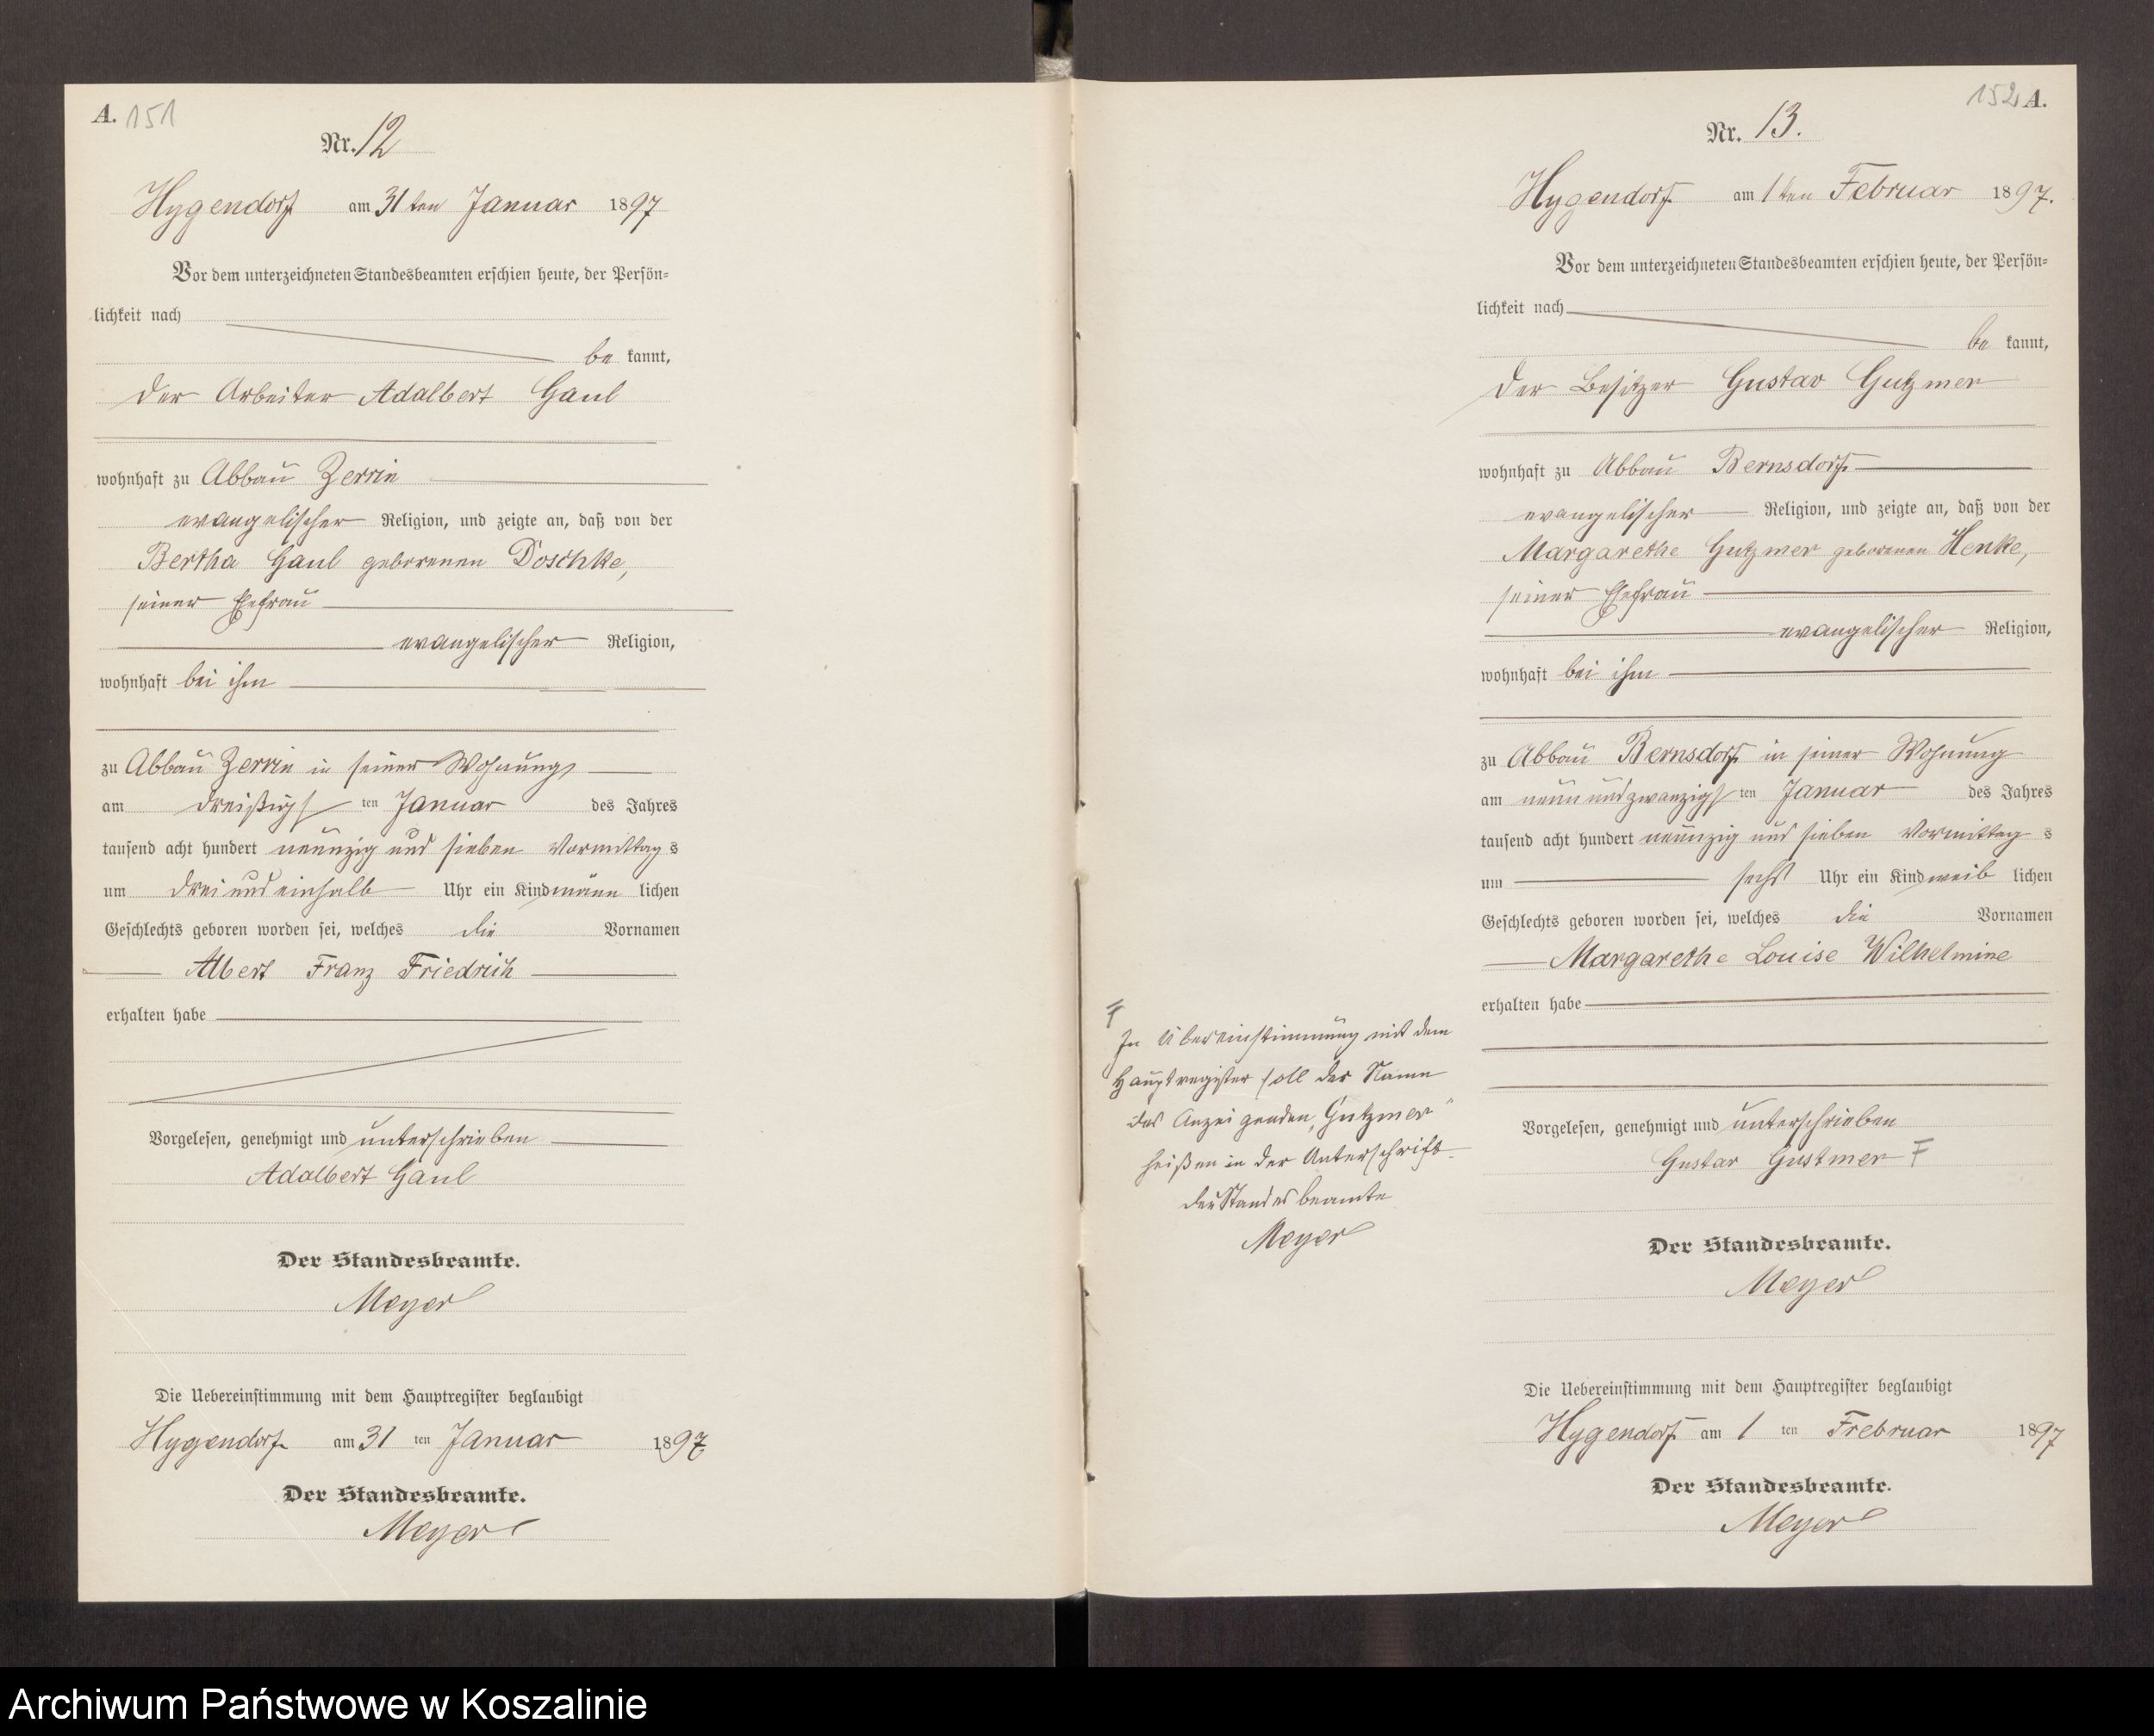 A. 151
Nr. 12
Hygendorf am 31ten Januar 1897
Vor dem unterzeichneten Standesbeamten erschien heute, der Persön-
lichkeit nach
be kannt,
der Arbeiter Adalbert Gaul
wohnhaft zu Abbau Zerrin
evangelischer Religion, und zeigte an, daß von der
Bertha Gaul geborenen Doschke,
seiner Ehefrau
evangelischer Religion,
wohnhaft bei ihm
zu Abbau Zerrin in seiner Wohnung
am dreißigsten Januar des Jahres
tausend acht hundert neunzig und sieben Vormittags
um drei und einhalb Uhr ein Kind männlichen
Geschlechts geboren worden sei, welches die Vornamen
Albert Franz Friedrich
erhalten habe
Vorgelesen, genehmigt und unterschrieben
Adalbert Gaul
Der Standesbeamte.
Meyer
Die Uebereinstimmung mit dem Hauptregister beglaubigt
Hygendorf am 31 ten Januar 1897
Der Standesbeamte.
Meyer
152 A.
Nr. 13.
Hygendorf am 1ten Februar 1897.
Vor dem unterzeichneten Standesbeamten erschien heute, der Persön-
lichkeit nach
be kannt,
der Besitzer Gustav Gutzmer
wohnhaft zu Abbau Bernsdorf
evangelischer Religion, und zeigte an, daß von der
Margarethe Gutzmer geborenen Henke,
seiner Ehefrau
evangelischer Religion,
wohnhaft bei ihm
zu Abbau Bernsdorf in seiner Wohnung
am neun und zwanzigsten Januar des Jahres
tausend acht hundert neunzig und sieben Vormittags
um sechs Uhr ein Kind weiblichen
Geschlechts geboren worden sei, welches die Vornamen
Margarethe Louise Wilhelmine
erhalten habe
Vorgelesen, genehmigt und unterschrieben
Gustav Gustmer F
Der Standesbeamte.
Meyer
Die Uebereinstimmung mit dem Hauptregister beglaubigt
Hygendorf am 1 ten Frebruar 1897
Der Standesbeamte.
Meyer
F
In Übereinstimmung mit dem
Hauptregister soll der Name
des Anzeigenden „Gutzmer"
heißen in der Unterschrift.
Der Standesbeamte
Meyer
Archiwum Państwowe w Koszalinie